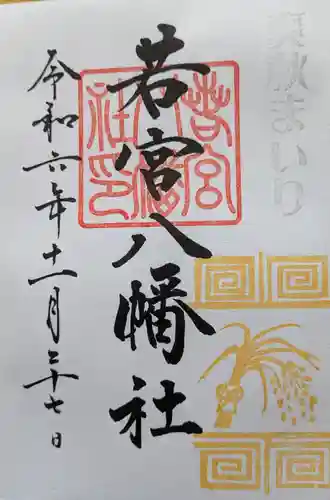 若宮八幡社
若宮八幡社印
令和六年十一月二十七日